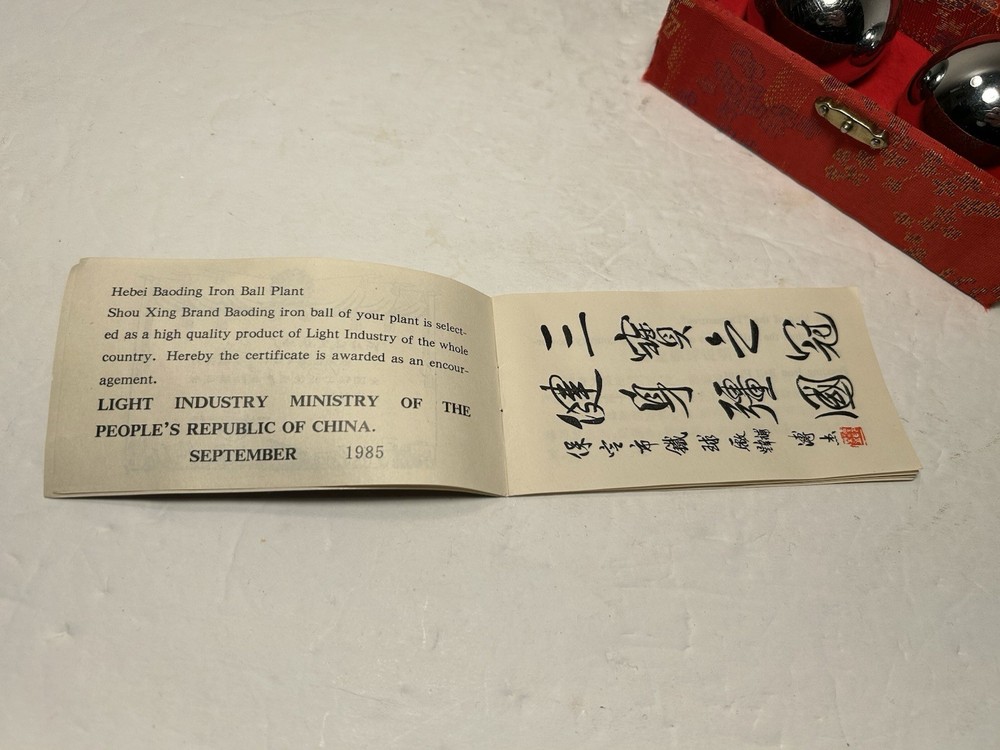 Hebei Baoding Iron Ball Plant
Shou Xing Brand Baoding iron ball of your plant is select-
ed as a high quality product of Light Industry of the whole
country. Hereby the certificate is awarded as an encour-
agement.
LIGHT INDUSTRY MINISTRY OF THE
PEOPLE'S REPUBLIC OF CHINA.
SEPTEMBER 1985
三寶之冠
健身彊國
保定市鐵球廠 溥杰